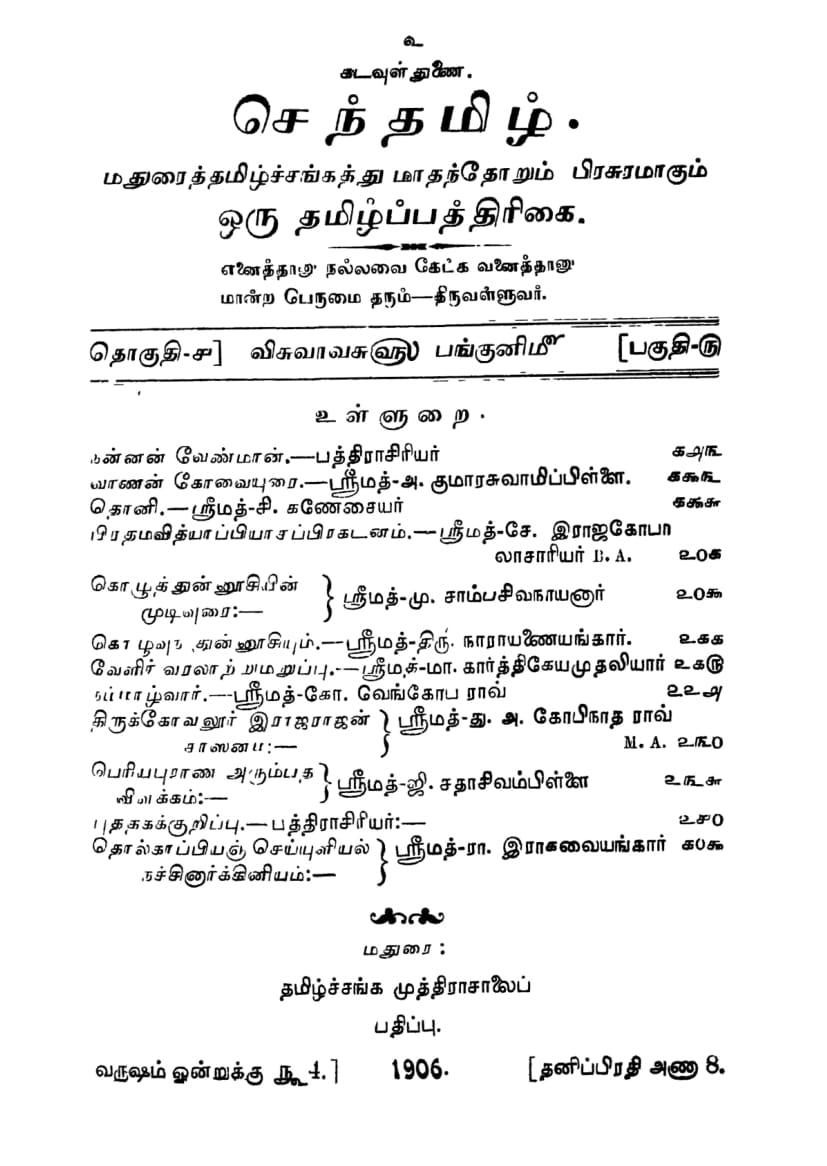 உ
கடவுள் துணை.
செந்தமிழ்.
மதுரைத்தமிழ்ச்சங்கத்து மாதந்தோறும் பிரசுரமாகும்
ஒரு தமிழ்ப்பத்திரிகை.
எனைத்தானு நல்லவை கேட்க வனைத்தானு
மான்ற பேருமை தரும்—திருவள்ளுவர்.
தொகுதி-௪] விசுவாவசு௵ பங்குனி௴ [பகுதி-௫
உள்ளுறை.
நன்னன் வேண்மான்.—பத்திராசிரியர் ௧௮௩
வாணன் கோவையுரை.—ஸ்ரீமத்-அ. குமாரசுவாமிப்பிள்ளை. ௧௯௩
தொனி.—ஸ்ரீமத்-சி. கணேசையர் ௧௯௬
பிரதமவித்யாப்பியாசப்பிரகடனம்.—ஸ்ரீமத்-சே. இராஜகோபா
லாசாரியர் B. A. ௨௦௧
கொழுக்துன்னூசியின் } ஸ்ரீமத்-மு. சாம்பசிவநாயனார் ௨௦௯
முடிவுரை:—
கொழுவுந்துன்னூசியும்.—ஸ்ரீமத்-திரு. நாராயணையங்கார். ௨௧௧
வேளிர் வரலாற்றுமறுப்பு.—ஸ்ரீமத்-மா. கார்த்திகேயமுதலியார் ௨௧௫
நம்மாழ்வார்.—ஸ்ரீமத்-கோ. வெங்கோப ராவ் ௨௨௮
திருக்கோவலூர் இராஜராஜன் } ஸ்ரீமத்-து. அ. கோபிநாத ராவ்
சாஸனம்:— M. A. ௨௩௦
பெரியபுராண அரும்பத } ஸ்ரீமத்-ஜி. சதாசிவம்பிள்ளை ௨௩௬
விளக்கம்:—
புத்தகக்குறிப்பு.—பத்திராசிரியர்:— ௨௪௦
தொல்காப்பியஞ் செய்யுளியல் } ஸ்ரீமத்-ரா. இராகவையங்கார் ௧௦௯
நச்சினார்க்கினியம்:—
மதுரை:
தமிழ்ச்சங்க முத்திராசாலைப்
பதிப்பு.
வருஷம் ஒன்றுக்கு ரூ 4.] 1906. [தனிப்பிரதி அணா 8.